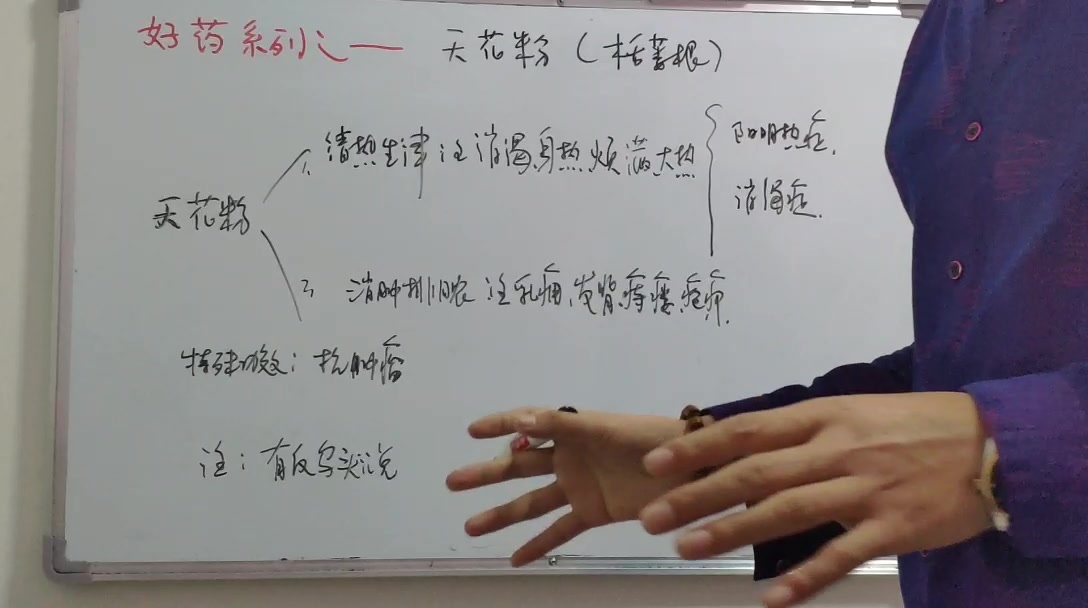 好药系列之一 天花粉（栝蒌根）
天花粉
1、清热生津 主消渴身热烦满大热
阳明热症.
消渴症.
2、消肿排脓 主乳痈、发背痔瘘疮疖.
特殊功效：抗肿瘤
注：有反乌头说